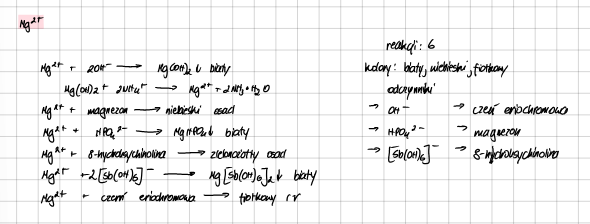 Mg²⁺
Mg²⁺ + 2OH⁻ → Mg(OH)₂↓ biały
Mg(OH)₂ + 2NH₄⁺ → Mg²⁺ + 2NH₃·H₂O
Mg²⁺ + magnezon → niebieski osad
Mg²⁺ + HPO₄²⁻ → MgHPO₄↓ biały
Mg²⁺ + 8-hydroksychinolina → zielonożółty osad
Mg²⁺ + 2[Sb(OH)₆]⁻ → Mg[Sb(OH)₆]₂↓ biały
Mg²⁺ + czerń eriochromowa → fiołkowy r-r
reakcji: 6
kolory: biały, niebieski, fiołkowy
odczynniki
→ OH⁻ → czerń eriochromowa
→ HPO₄²⁻ → magnezon
→ [Sb(OH)₆]⁻ → 8-hydroksychinolina